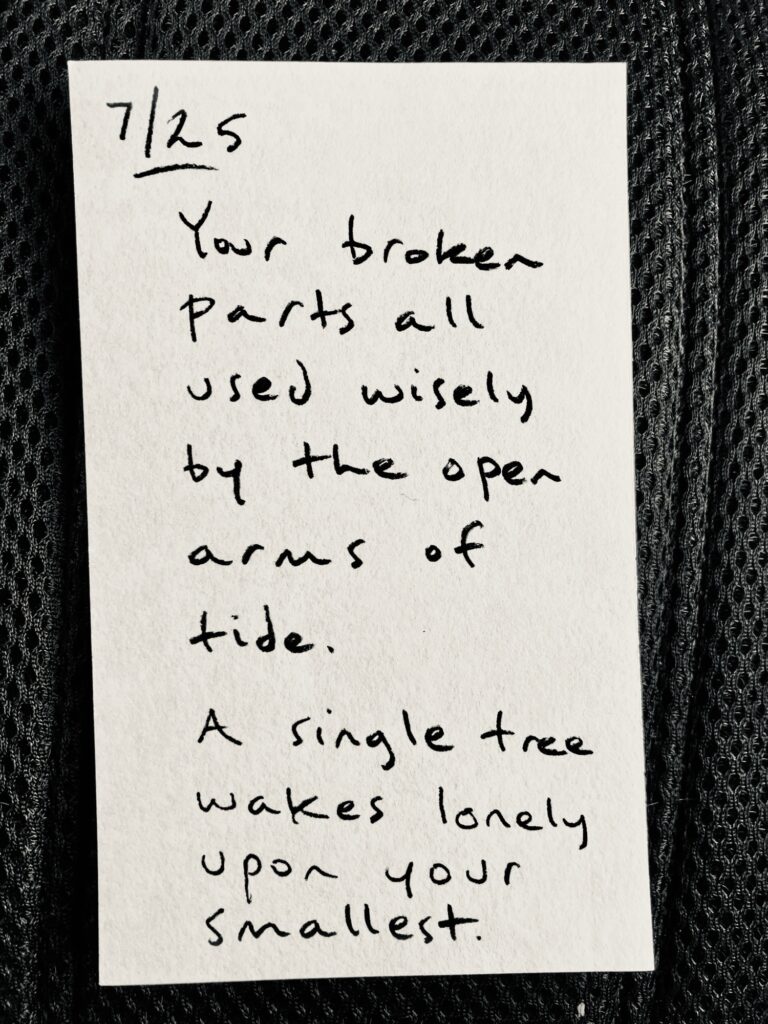 7/25
Your broken
parts all
used wisely
by the open
arms of
tide.
A single tree
wakes lonely
upon your
smallest.